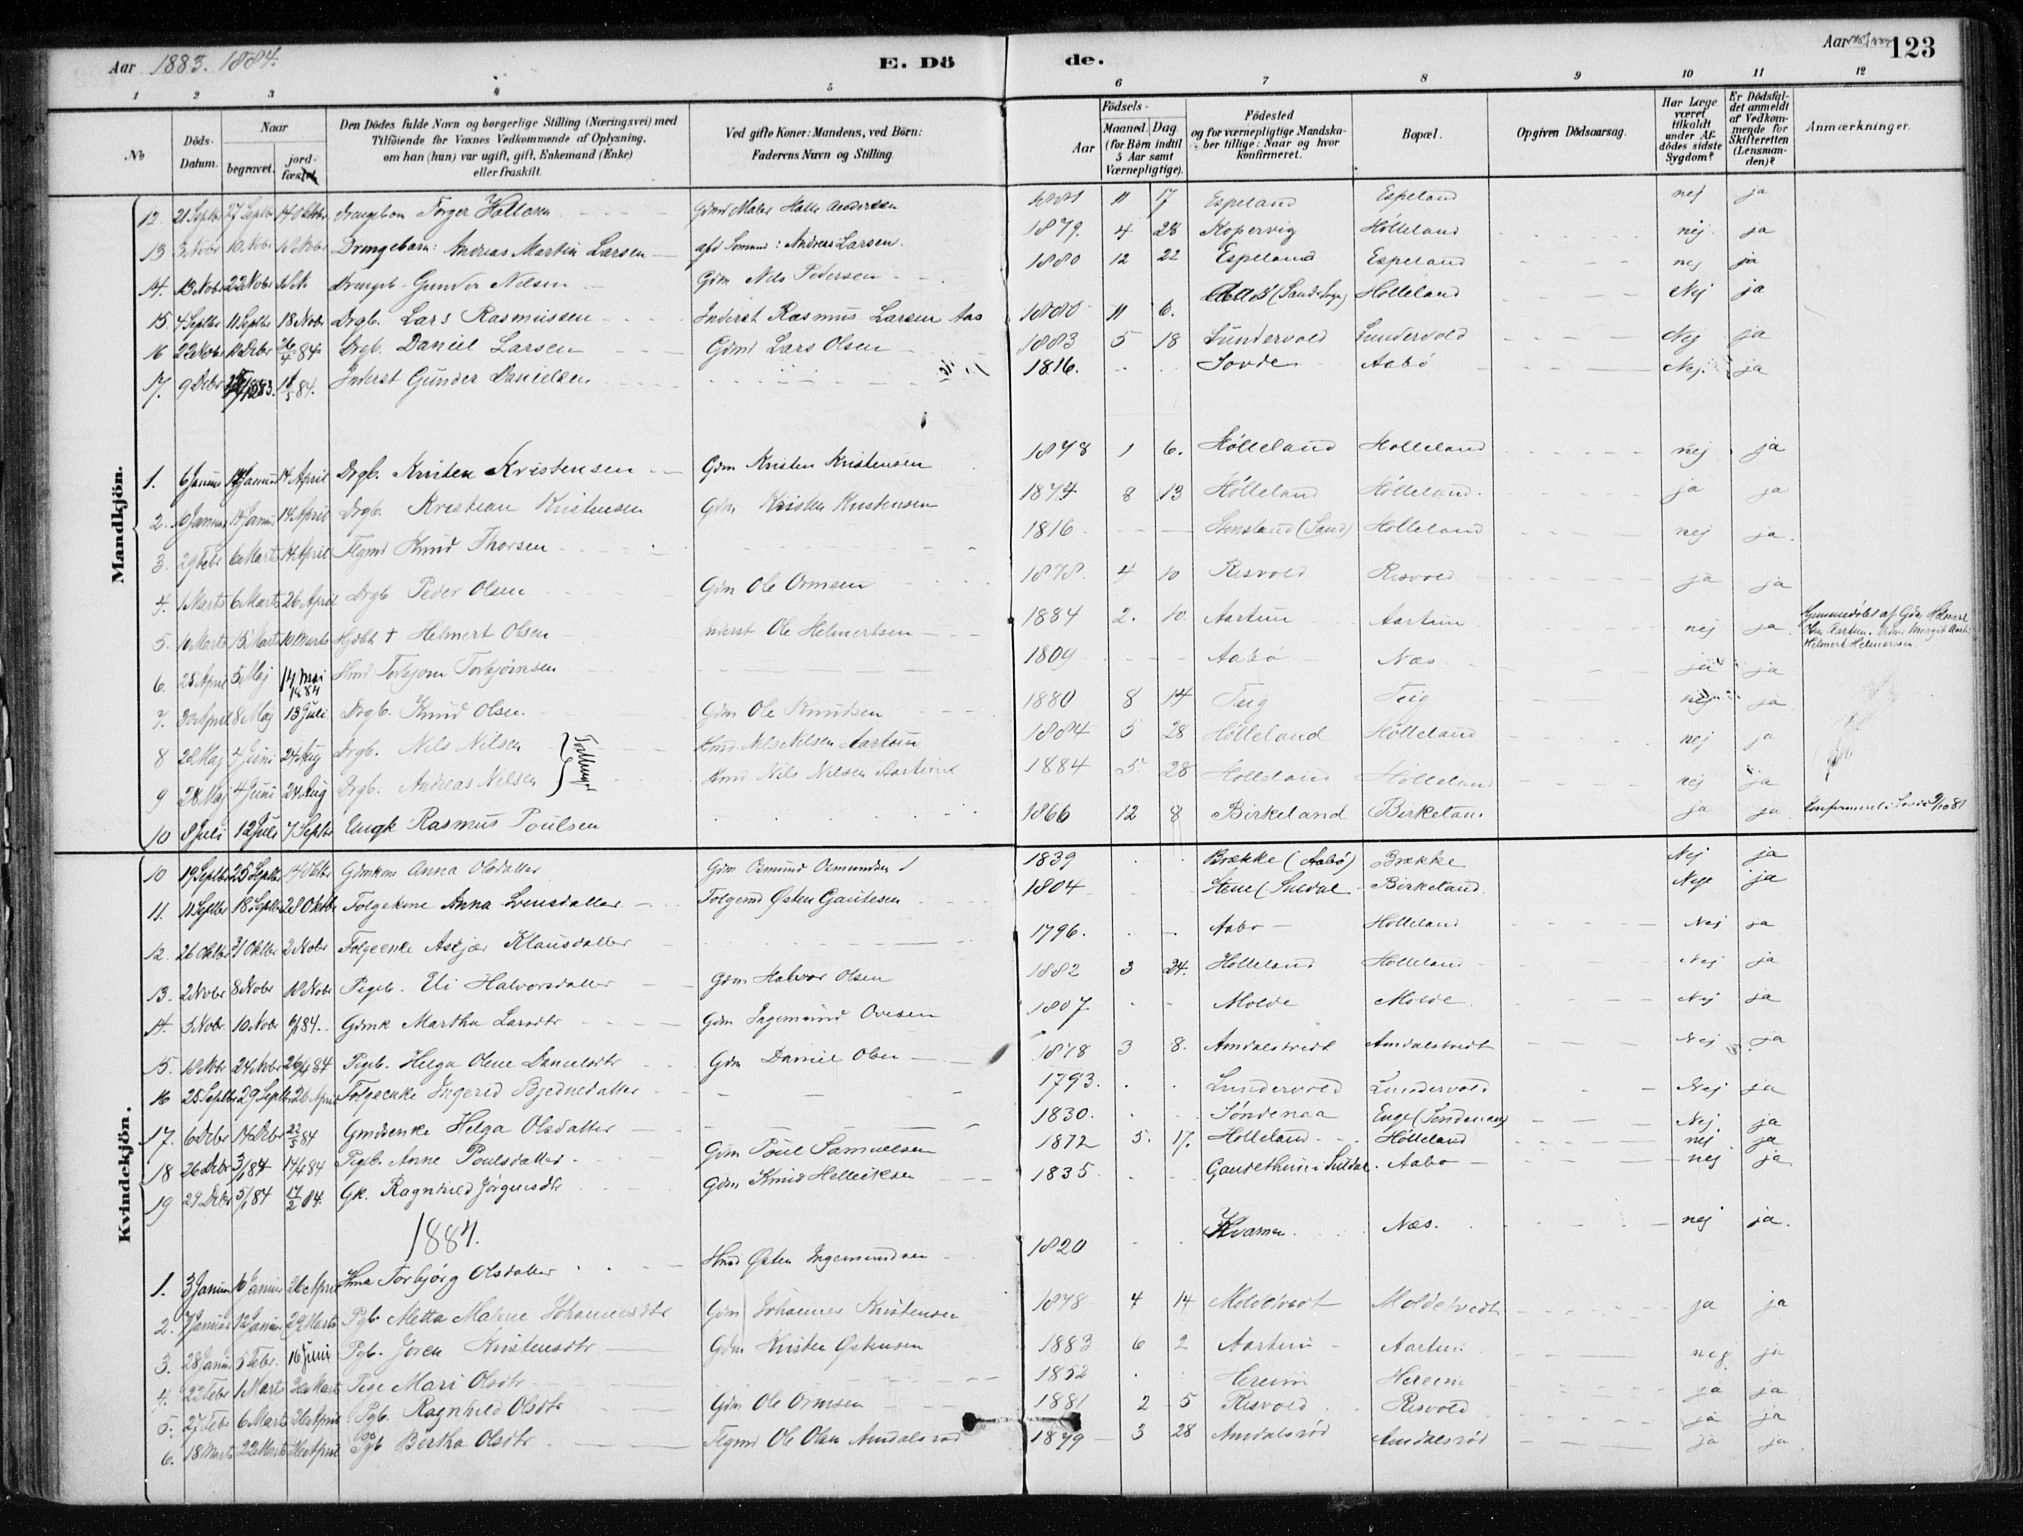 Aar 1883. 1884. E. Dö de. Aar 123
1 2 3 4 5 6 7 8 9 10 11 12
No
Döds-Datum.
Naar
begravet. jord-fæstet.
Den Dödes fulde Navn og borgerlige Stilling (Næringsvei) med
Tilföiende for Voxnes Vedkommende af Oplysning,
om han (hun) var ugift, gift, Enkemand (Enke)
eller fraskilt.
Ved gifte Koner: Mandens, ved Börn:
Faderens Navn og Stilling.
Födsels-
Aar Maaned. Dag.
(for Börn indtil 5 Aar samt Værnepligtige).
Födested
og for værnepligtige Mandska-
ber tillige: Naar og hvor
konfirmeret.
Bopæl.
Opgiven Dödsaarsag.
Har Læge været tilkaldt under Af-dödes sidste Sygdom?
Er Dödsfal-det anmeldt af Vedkom-mende for Skifteretten (Lensman-den)?
Anmærkninger.
Mandkjön.
12. 21 Septbr 27 Septbr 14 Oktbr Drengebarn Torger Hallesen Gdmd Halle Andersen 1881 11 17 Espeland Espeland nej ja
13 3 Novbr 10 Novbr Drengebarn: Andreas Martin Larsen Andreas Larsen. 1879. 4 28 Kopervig Hölleland nej ja
14. 13 Nobr 22 Nobr Drengeb. Gunder Nilsen Gdm Nils Pedersen 1880 12 22 Espeland Espeland nej ja
15. 4 Septbr 11 Septbr 18 Nobr Drgb. Lars Rasmussen Inderst Rasmus Larsen Aas 1880 11 6. Hölleland Nej ja
16 22 Nobr Decbr 26/4 84 Drgb. Daniel Larsen Gdmd Lars Olsen 1883 5 18 Lundervold Lundervold Nej ja
17. 9 Decbr 1883. 84. Inderst Gunder Danielsen 1816. Sovde Aabö Nej. ja
1. 6 Januar 14 Januar 14 April Drgb. Kristen Kristensen Gdm Kristen Kristensen 1878 1 6. Hölleland Hölleland nej ja
2. Januar 14 Januar 14 April Drgb. Kristian Kristensen Gdm Kristen Kristensen 1874 8 13 Hölleland Hölleland. ja ja
3. 29 Febr 6 Marts 14 April Flgmd Knud Thorsen 1816 (Sand) Hölleland nej ja.
4. 1 Marts 6 Marts 26 April Drgb Peder Olsen Gdm Ole Ormsen 1878. 4 10 Risvold Risvold ja ja
5. 10 Marts 15 Marts 10 Marts Hjdbt † Helmert Olsen Inderst Ole Helmertsen 1884 2. 10. Aartun Aartun nej ja. Hjemmedöbt af Gdm Helmert
Aartun. Helmert Helmertsen.
6. 25 April 5 Maj 14 Mai 1884 Hmd Torbjorn Torbjörnsen 1809 Aabö Næs ja ja
7. 30 April 8 Maj 13 Juli Drgb. Knud Olsen. Gdm Ole Knudsen 1880 8 14 Teig Teig nej ja
8 28 Maj 4 Juni 24 Aug Drgb. Nils Nilsen Hmd Nils Nilsen Aartun 1884 5 28 Hölleland Hölleland nej ja
9 28 Maj 4 Juni 24 Aug Drgb. Andreas Nilsen Hmd Nils Nilsen Aartun 1884 5. 28 Hölleland Hölleland nej ja
10 8 Juli 12 Juli 7 Septbr Ungk Rasmus Poulsen 1866 12 8 Birkeland Birkeland ja ja
Kvindekjön.
10 19 Septbr 25 Septbr 14 Oktbr Gdmkone Anna Olsdatter Gdm Osmund Osmundsen 1839 Brække (Aabö) Brække Nej ja
11. 11 Septbr 18 Septbr 28 Oktbr Folgekone Anna Svensdatter Folgemd Østen Gautesen 1804 (Suldal Birkeland. Nej ja
12. 26 Oktbr 31 Oktbr 2 Nobr Folgeenke Askjær Klausdatter 1796. Aabo Hölleland Nej ja
13. 2 Nobr 8 Nobr 18 Nobr Pigeb. Eli Halvorsdatter Gdm Halvor Olsen 1882 3 24. Hölleland Hölleland Nej ja
14. Nobr. 10 Nobr 84. Gdmk Martha Larsdtr Gdm Ingemund Ovesen 1807 Molde Molde Nej ja
15. 18 Nobr 24 Nobr 26/4 84 Pigeb. Helga Oline Danielsdtr Gdm Daniel Olsen 1878 3 8. Amdalstvedt Amdalstvedt Nej ja
16 25 Septbr 29 Septbr 26 April Folgeenke Ingerid Bjednedatter 1793. Lundervold Lundervold Nej ja
17. 6 Decbr 14 Decbr 22/5 84 Gmdsenke Helga Olsdatter 1830. Söndenaa Enge (Söndenaa) Nej. ja
18 26 Decbr 3/1 84 14/4 84 Pigb. Anne Poulsdatter. Gdm Poul Samuelsen 1872 5. 17. Hölleland Hölleland nej ja
19 29 Decbr 5/1 84 17/2 84. Gk. Ragnhild Jörgensdtr Gdm Knud Helleiksen 1835. Suldal. Aabo nej ja
1884.
1. 3 Januar 10 Januar 26 April Hma Torbjörg Olsdatter Hmd Østen Ingemundsen 1820 Kvamen Næs. nej ja.
2. 7 Januar 12 Januar 29 Marts Pgb Metta Malene Johannesdtr Gdm Johannes Kristensen 1878 4 14 Moldetvedt Moldetvedt ja ja
3. 28 Januar 5 Febr. 16 Juni Pgb. Joren Kristensdtr Gdm Kristen Østensen 1883 6 2 Aartun Aartun nej ja
4. 22 Febr 1 Marts Marts Pige Mari Olsdtr 1852 Hereim Hereim ja ja
5. 27 Febr 6 Marts 26 April Pgb. Ragnhild Olsdtr Gdm Ole Ormsen 1881 2 5 Risvold Risvold ja ja
6. 18 Marts 22 Marts April Pgb Bertha Olsdtr Flgmd Ole Olsen Amdalsrød 1879 3 28 Amdalsröd Amdalsröd ja ja